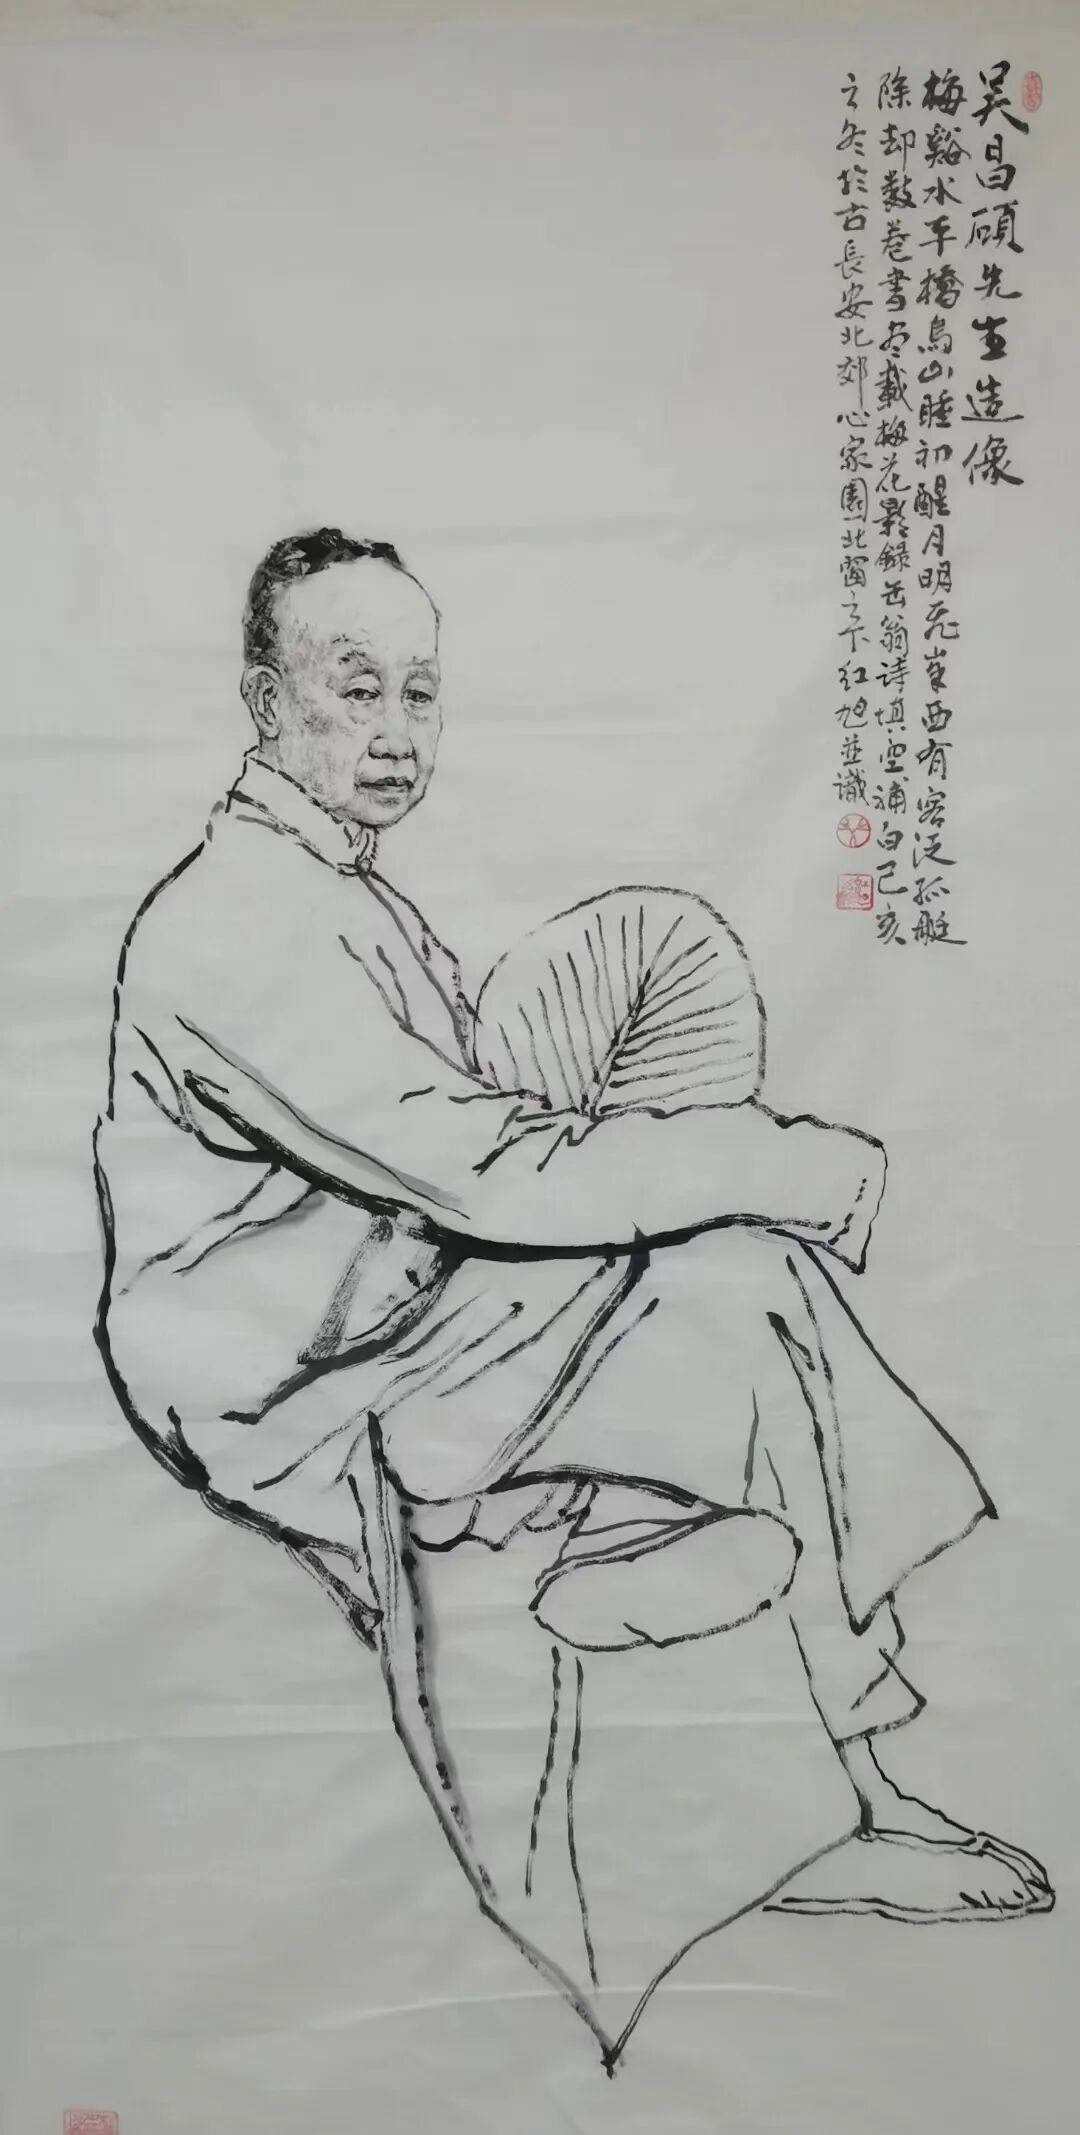 吴昌硕先生造像
梅谿水平橋烏山睡初醒月明乱峯西有客泛孤艇
除却數卷書盡載梅花影錄缶翁诗填空補白己亥
之冬於古長安北郊心家園北窗之下红旭並識